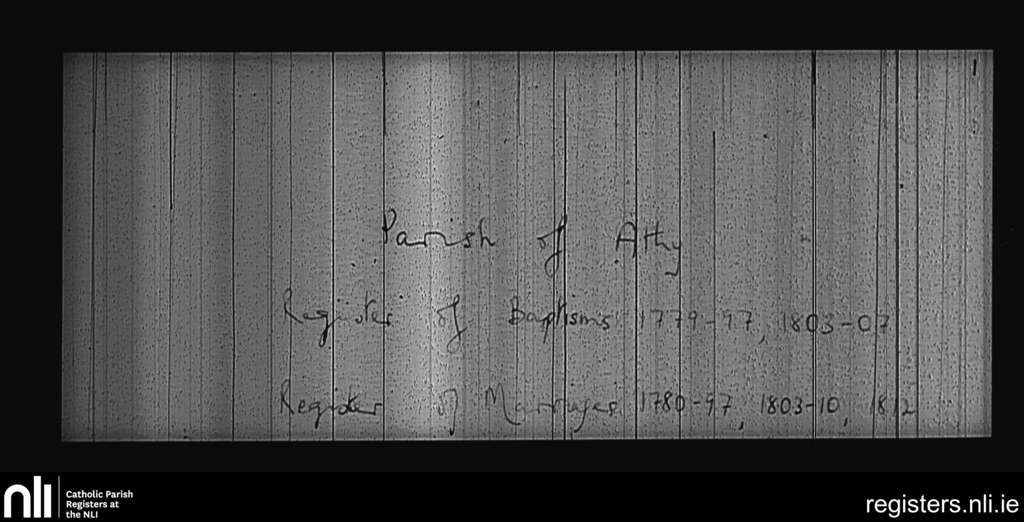 Parish of Athy
Register of Baptisms 1779-97, 1803-07
Register of Marriages 1780-97, 1803-10, 1812
nli
Catholic Parish
Registers at
the NLI
registers.nli.ie